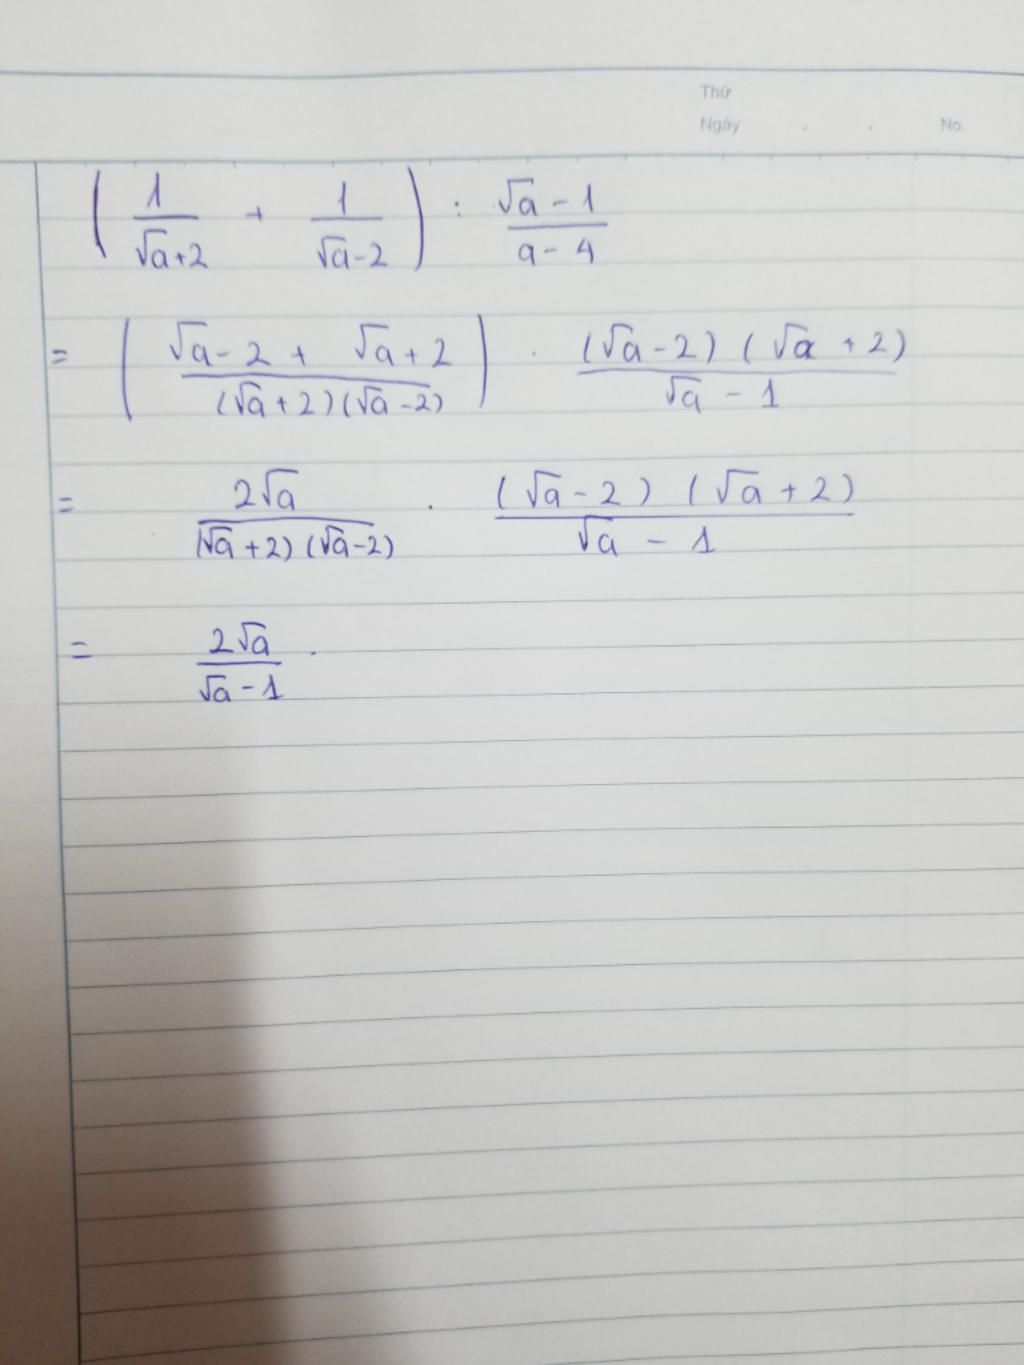 Thứ
Ngày . . No.
( 1/(√a+2) + 1/(√a-2) ) : (√a - 1)/(a - 4)
= ( (√a - 2 + √a + 2)/((√a + 2)(√a - 2)) ) . ((√a - 2)(√a + 2))/(√a - 1)
= 2√a/((√a + 2)(√a - 2)) . ((√a - 2)(√a + 2))/(√a - 1)
= 2√a/(√a - 1) .